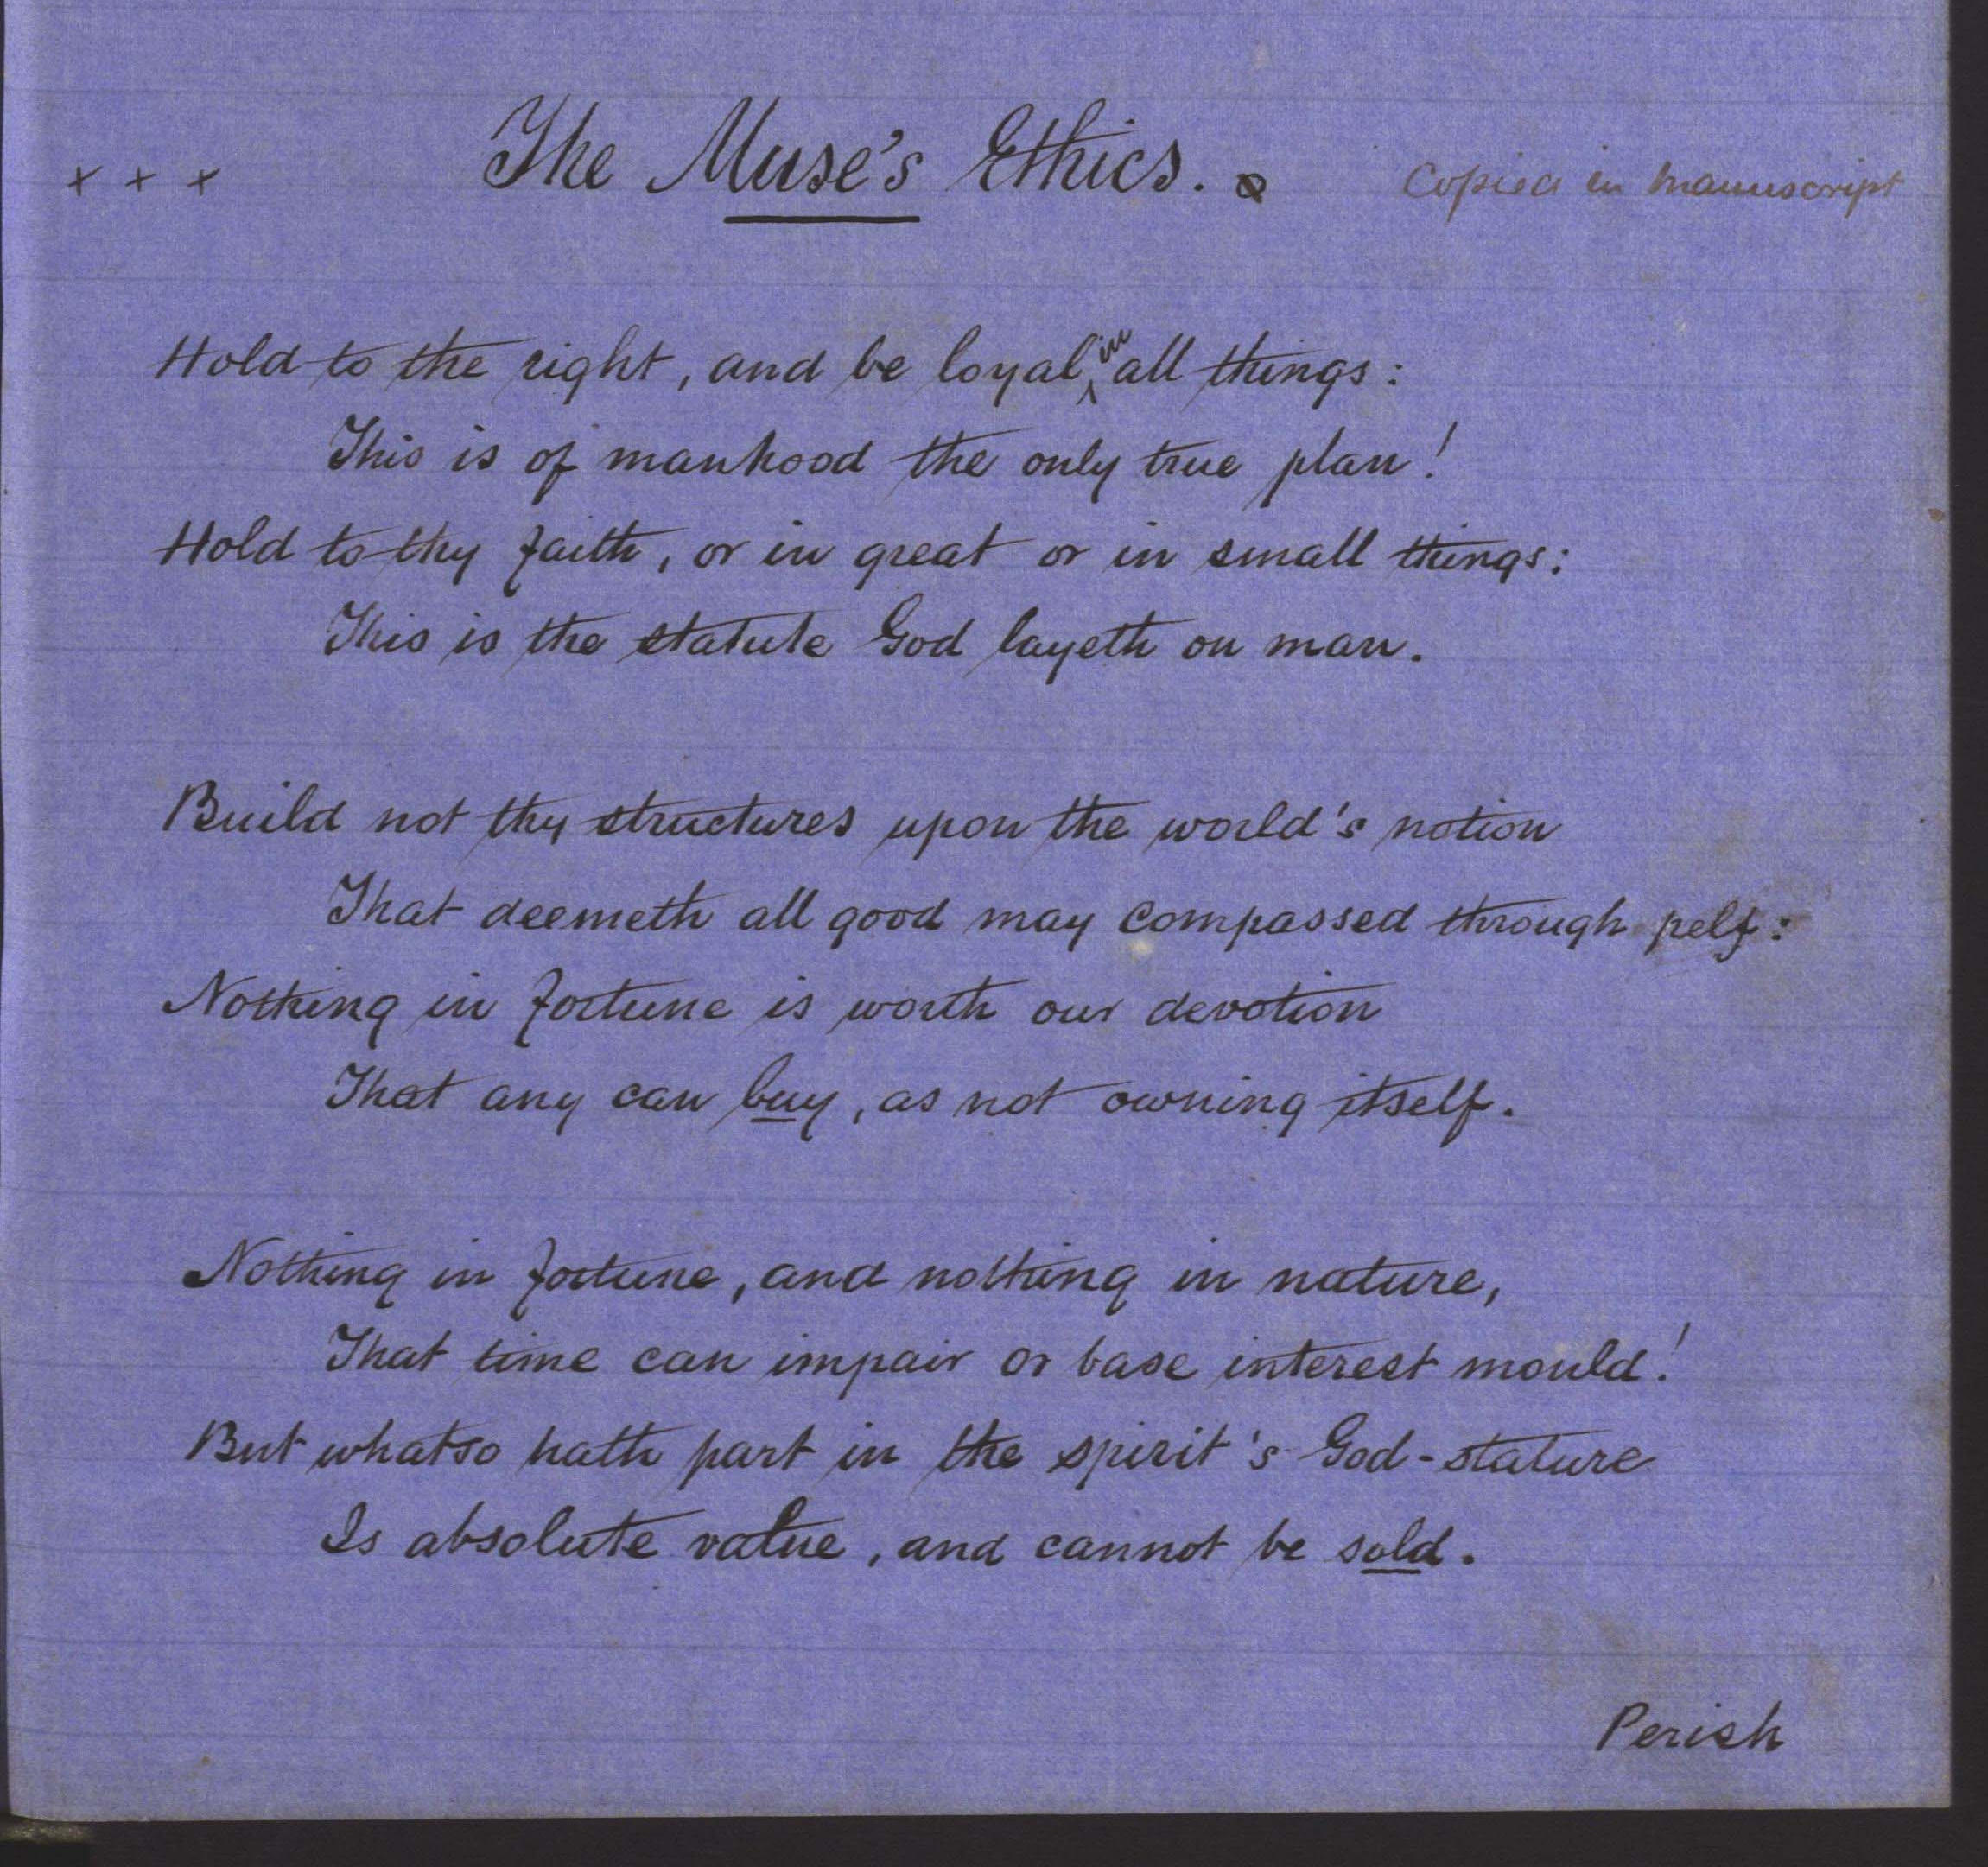 + + + The Muse's Ethics. Copied in Manuscript
Hold to the right, and be loyal in all things:
This is of manhood the only true plan!
Hold to thy faith, or in great or in small things:
This is the statute God layeth on man.
Build not thy structures upon the world's notion
That deemeth all good may compassed through pelf:
Nothing in fortune is worth our devotion
That any can buy, as not owning itself.
Nothing in fortune, and nothing in nature,
That time can impair or base interest mould!
But whatso hath part in the spirit's God-stature
Is absolute value, and cannot be sold.
Perish